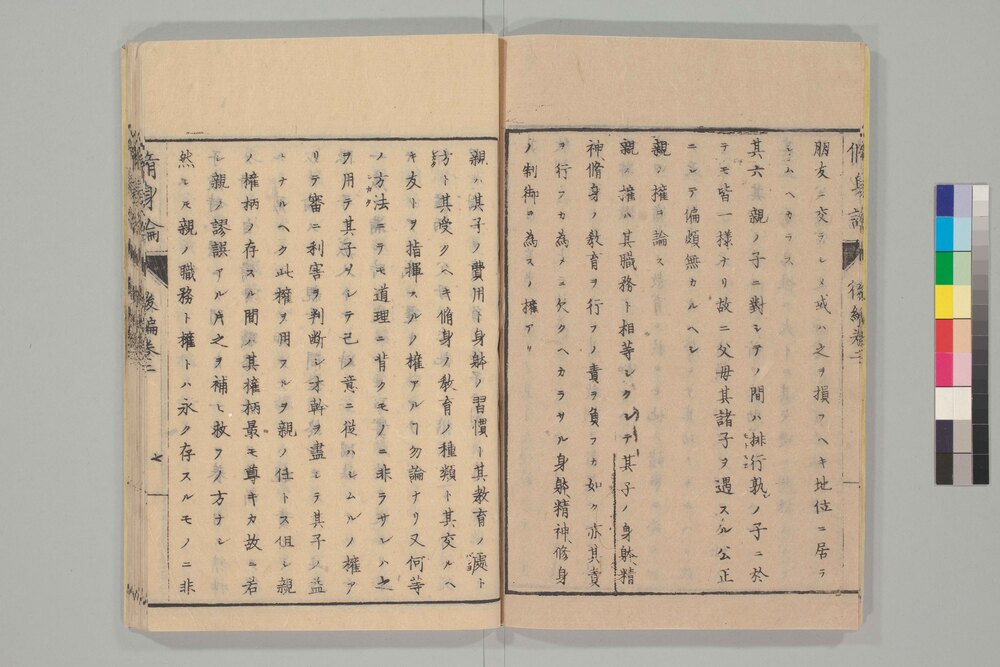 朋友ニ交ラシメ或ハ之ヲ損フヘキ地位ニ居ラ
シムヘカラス
其六親ノ子ニ對シテノ間ハ排行孰ノ子ニ於
テモ皆一様ナリ故ニ父母其諸子ヲ遇スル公正
ニシテ偏頗無カルヘシ
親ノ權ヲ論ス
親ノ權ハ其職務ト相等シクシテ其子ノ身躰精
神脩身ノ教育ヲ行フノ責ヲ負フカ如ク亦其責
ヲ行フカ為メニ欠クヘカラサル身躰精神修身
ノ制御ヲ為スノ權アリ
親ハ其子ノ費用ト身躰ノ習慣ト其教育ノ處ト
方ト其受クヘキ脩身ノ教育ノ種類ト其交ルヘ
キ友トヲ指揮スルノ權アルヿ勿論ナリ又何等
ノ方法ニテモ道理ニ背クモノニ非ラサレハ之
ヲ用テ其子ヲシテ己ノ意ニ從ハシムルノ權ア
リテ審ニ利害ヲ判断シ才幹ヲ盡シテ其子ノ益
トナルヘク此權ヲ用フルヲ親ノ任トス但シ親
ノ權柄ノ存スル間ハ其權柄最モ尊キカ故ニ若
シ親ノ謬誤アル𪜈之ヲ補ヒ救フノ方ナシ
然レモ親ノ職務ト權トハ永ク存スルモノニ非
脩身論 後編卷二
七